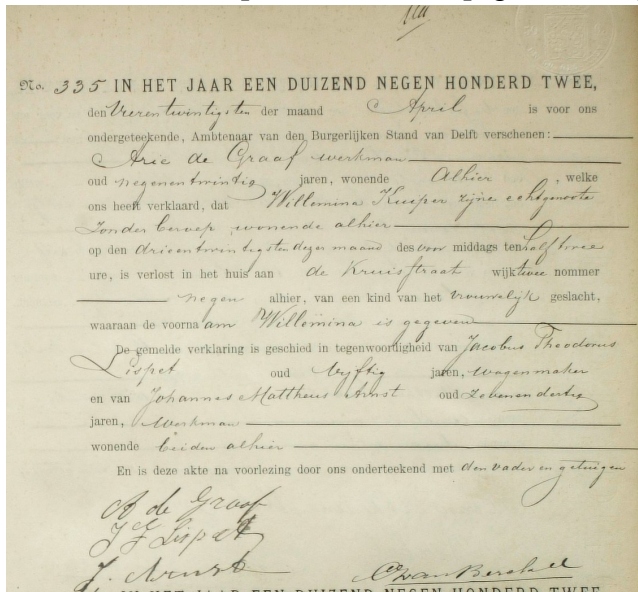 No. 335 IN HET JAAR EEN DUIZEND NEGEN HONDERD TWEE,
den Vierentwintigsten der maand April is voor ons
ondergeteekende, Ambtenaar van den Burgerlijken Stand van Delft verschenen:
Arie de Graaf werkman
oud negenentwintig jaren, wonende Alhier, welke
ons heeft verklaard, dat Willemina Kuiper zijne echtgenoote
Zonder beroep, wonende alhier
op den drieentwintigsten dezer maand des voor middags ten half twee
ure, is verlost in het huis aan de Kruisstraat wijk twee nommer
negen alhier, van een kind van het vrouwelijk geslacht,
waaraan de voornaam Willemina is gegeven
De gemelde verklaring is geschied in tegenwoordigheid van Jacobus Theodorus
Lispet oud vyftig jaren, wagenmaker
en van Johannes Mattheus Arnst oud zevenendertig
jaren, Werkman
wonende beiden alhier
En is deze akte na voorlezing door ons onderteekend met den vader en getuigen
A de Graaf
J T Lispet
J. Arnst
van Berckel
IN HET JAAR EEN DUIZEND NEGEN HONDERD TWEE